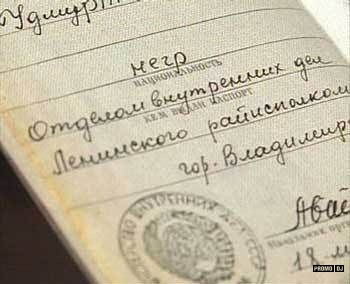 Удмурт
негр
НАЦИОНАЛЬНОСТЬ
Отделом внутренних дел
КЕМ ВЫДАН ПАСПОРТ
Ленинского райисполком
гор. Владимир
Авай
Начальник орг
18 м
PROMO DJ